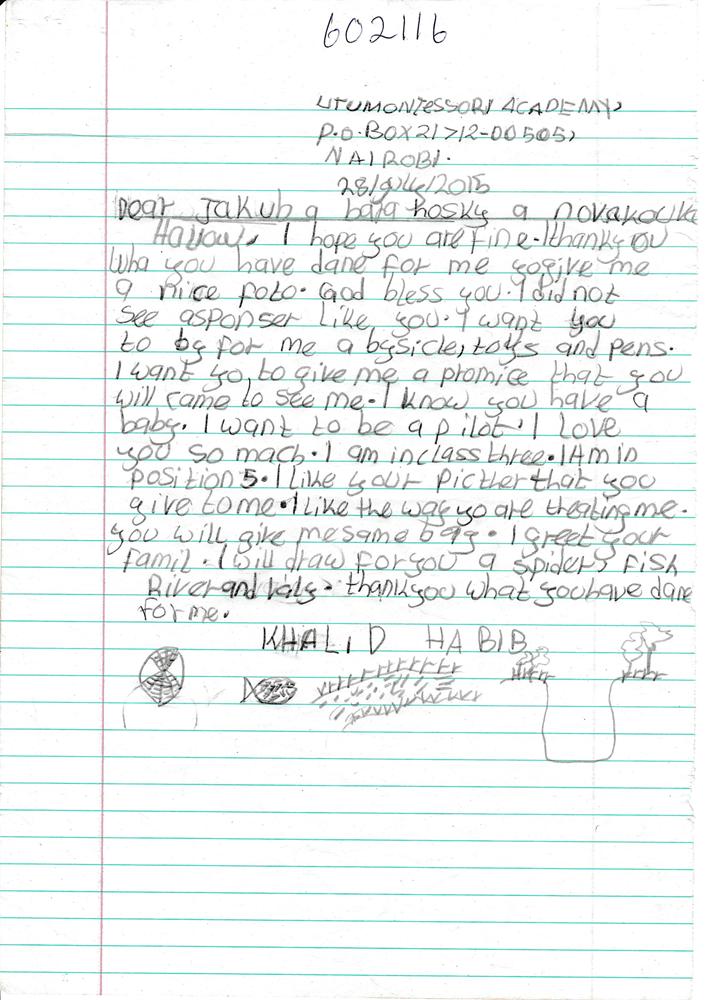 602116
UTUMONTESSORI ACADEMY,
P.O.BOX 21712-00505,
NAIROBI.
28/july/2015
Dear Jakub a bara hosky a novakouka
Hallow, I hope you are fine. Ithank you
wha you have dane for me yogive me
a nice foto. God bless you. I did not
see asponser like you. I want you
to by for me a bysicle, toys and pens.
I want yo, to give me a promice that you
will came to see me. I know you have a
baby. I want to be a pilot. I love
you so mach. I am in class three. I Am in
position 5. I like your picther that you
give to me. I like the way yo are theating me.
you will give me same bag. I greet your
famil. I will draw for you a spider, Fish
River and valy. thank you what you have dane
for me.
KHALID HABIB